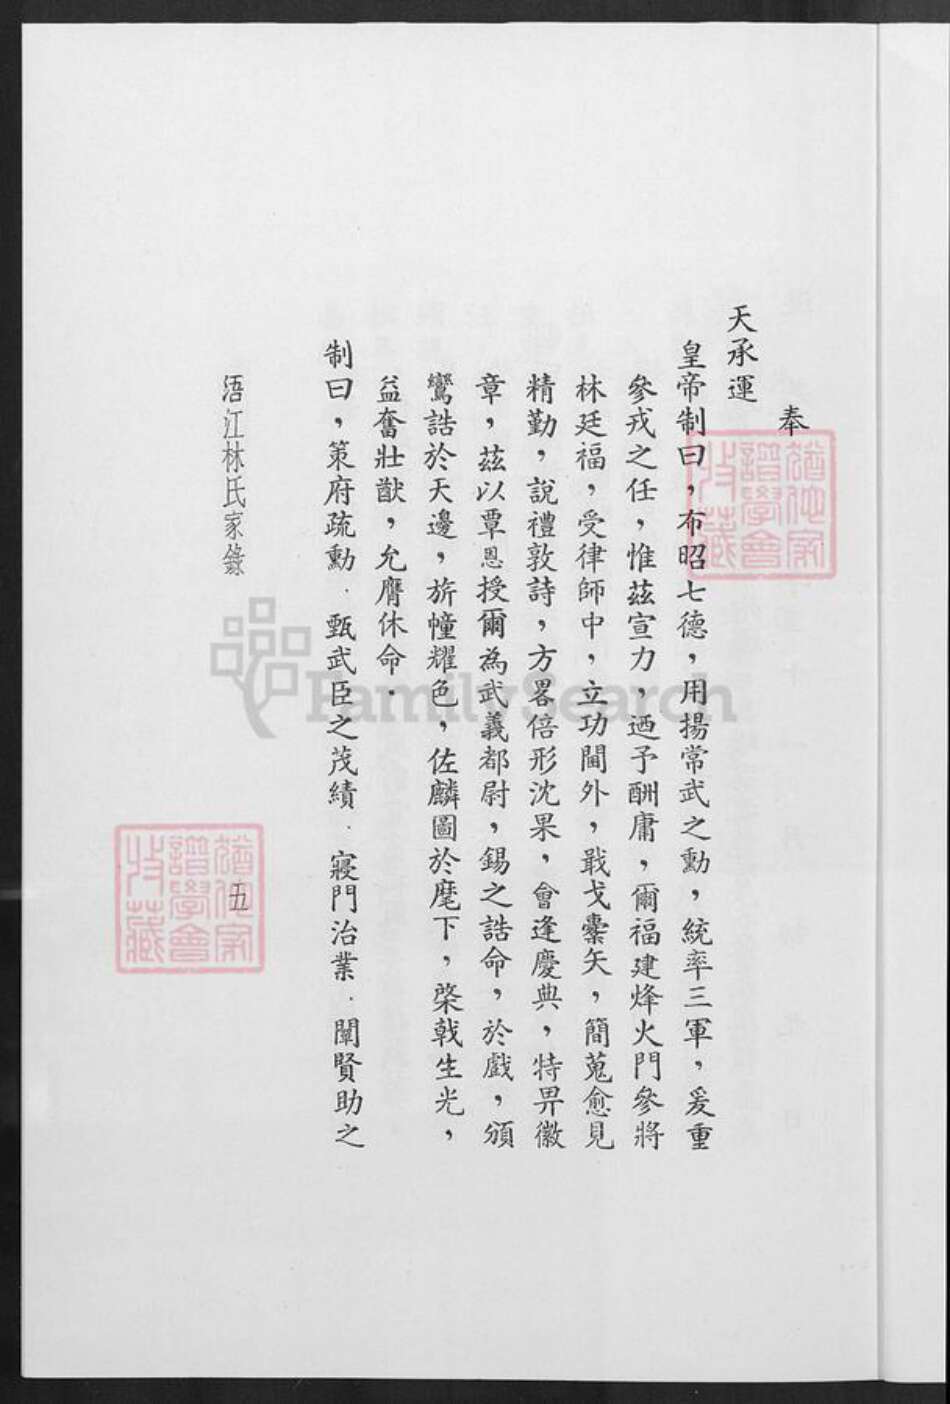 奉
天承運
皇帝制曰，布昭七德，用揚常武之勳，統率三軍，爰重
參戎之任，惟茲宣力，迺予酬庸，爾福建烽火門參將
林廷福，受律師中，立功閫外，戢戈櫜矢，簡蒐愈見
精勤，說禮敦詩，方畧倍形沈果，會逢慶典，特畀徽
章，茲以覃恩授爾為武義都尉，錫之誥命，於戲，頒
鸞誥於天邊，旂幢耀色，佐麟圖於麾下，棨戟生光，
益奮壯猷，允膺休命．
制曰，策府疏勳．甄武臣之茂績．寢門治業．闡賢助之
浯江林氏家錄
五
譜學會
收藏
譜學會
收藏
FamilySearch